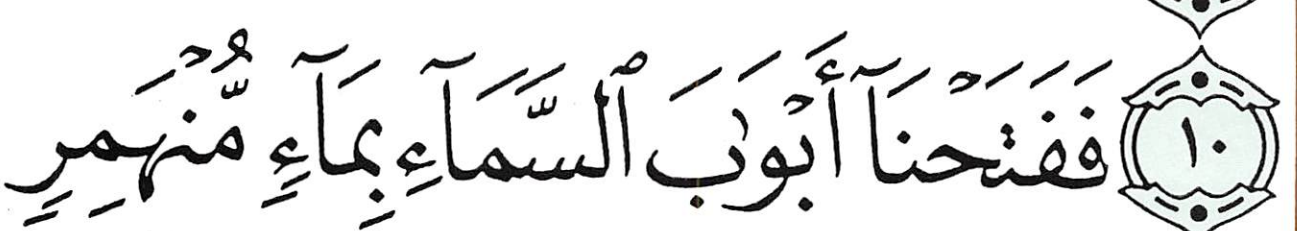 ١٠ فَفَتَحْنَآ أَبْوَٰبَ ٱلسَّمَآءِ بِمَآءٍ مُّنْهَمِرٍ